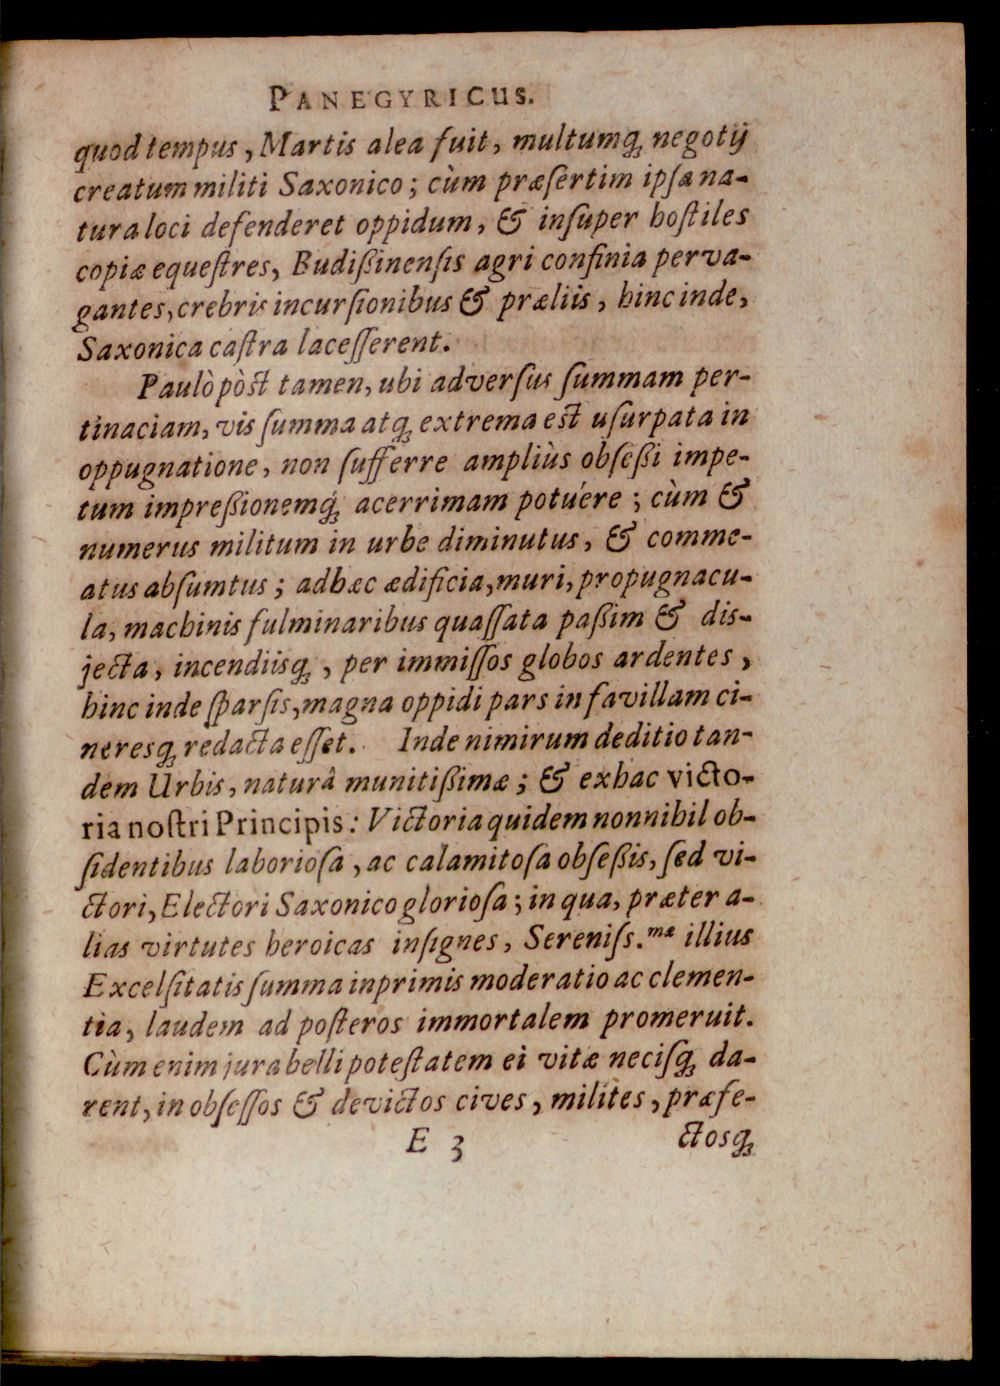 PANEGYRICUS.
quod tempus, Martis alea fuit, multumq́ꝫ negotij
creatum militi Saxonico; cùm præſertim ipſa na-
tura loci defenderet oppidum, & inſuper hoſtiles
copiæ equeſtres, Budißinenſis agri confinia perva-
gantes, crebris incurſionibus & præliis, hinc inde,
Saxonica caſtra laceſſerent.
Paulò pòst tamen, ubi adverſus ſummam per-
tinaciam, vis ſumma atqꝫ extrema est uſurpata in
oppugnatione, non ſufferre ampliùs obſeßi impe-
tum impreßionemq́ꝫ acerrimam potuére; cùm &
numerus militum in urbe diminutus, & comme-
atus abſumtus; adhæc ædificia, muri, propugnacu-
la, machinis fulminaribus quaſſata paßim & dis-
jecta, incendiisqꝫ, per immiſſos globos ardentes,
hinc inde ſparſis, magna oppidi pars in favillam ci-
neresqꝫ redacta eſſet. Inde nimirum deditio tan-
dem Urbis, naturâ munitißimæ; & ex hac victo-
ria noſtri Principis: Victoria quidem nonnihil ob-
ſidentibus laborioſa, ac calamitoſa obſeßis, ſed vi-
ctori, Electori Saxonico glorioſa; in qua, præter a-
lias virtutes heroicas inſignes, Sereniſs.mæ illius
Excelſitatis ſumma inprimis moderatio ac clemen-
tia, laudem ad poſteros immortalem promeruit.
Cùm enim jura belli poteſtatem ei vitæ neciſqꝫ da-
rent, in obſeſſos & devictos cives, milites, præfe-
E 3 ctosqꝫ